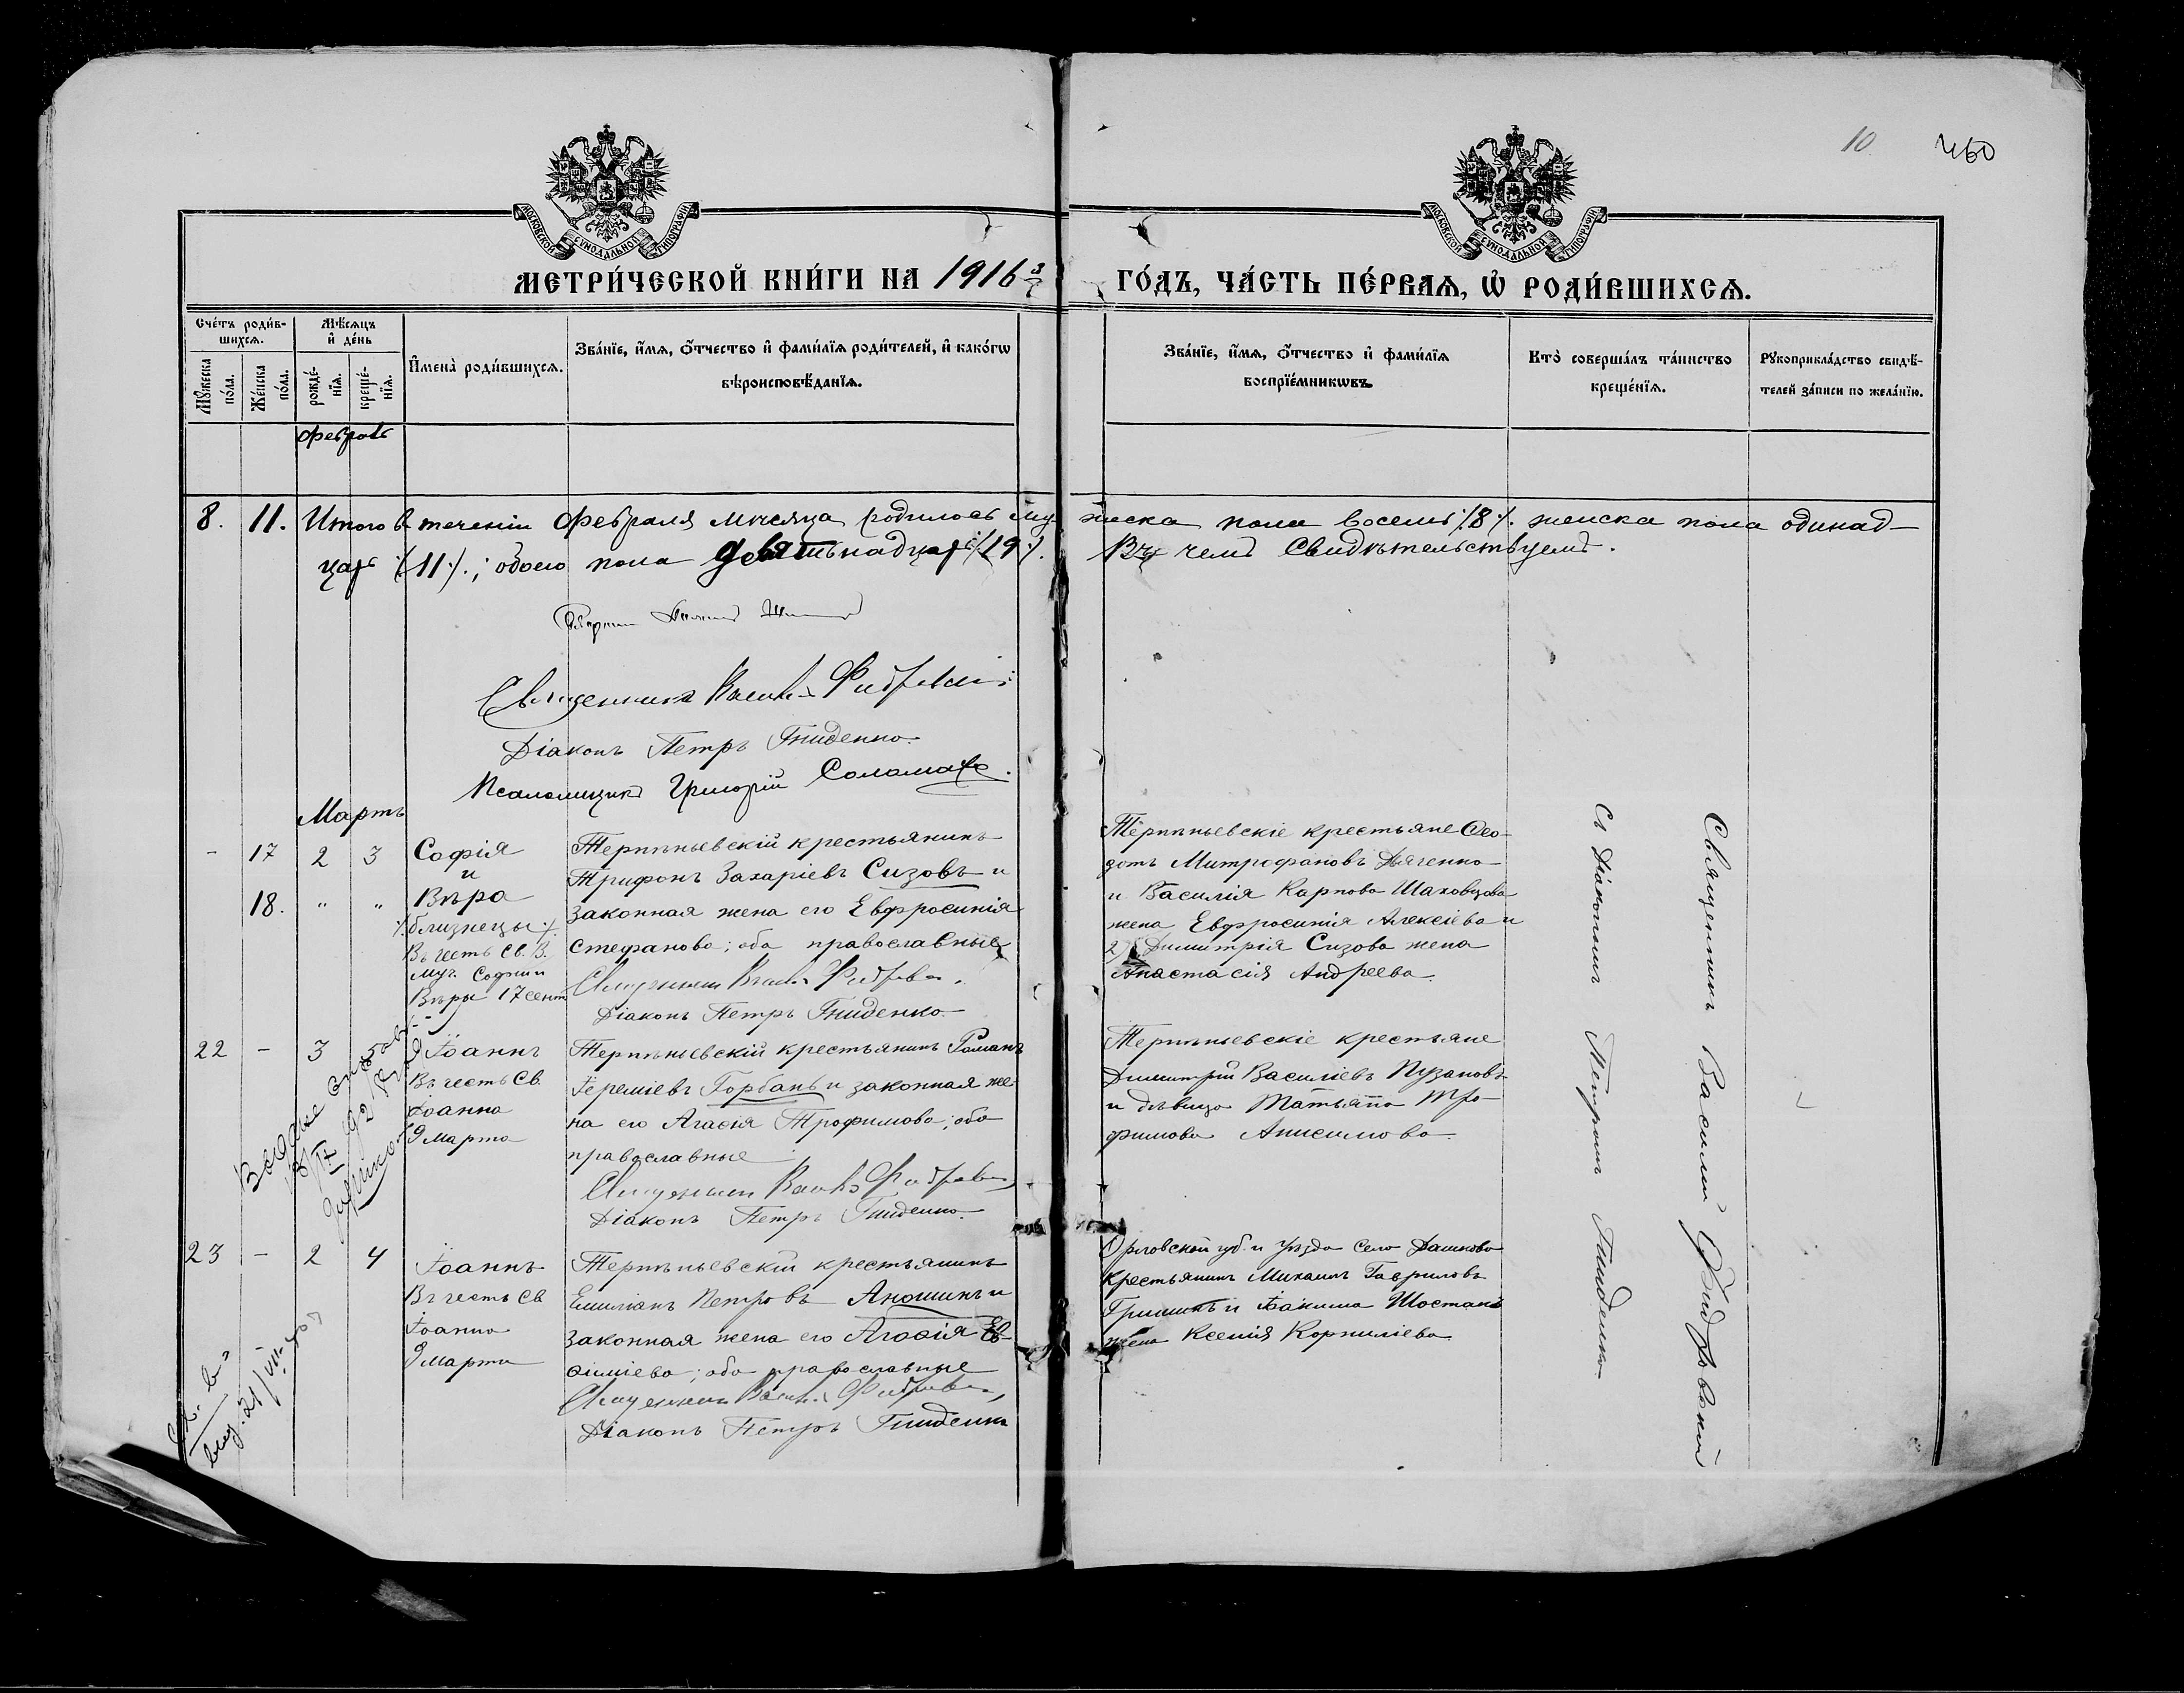 10
МОСКОВСКОЙ СѴНОДАЛЬНОЙ ТИПОГРАФІИ
МОСКОВСКОЙ СѴНОДАЛЬНОЙ ТИПОГРАФІИ
МЕТРИ́ЧЕСКОЙ КНИ́ГИ НА 1916
ГО́ДЪ, ЧА́СТЬ ПЕ́РВАЯ, Ѡ҆ РОДИ́ВШИХСЯ.
Сче́тъ роди́в-
шихся.
Мѣ́сяцъ
и҆ де́нь
Мꙋ́жеска
по́ла.
Же́нска
по́ла.
рожде́-
нїя.
креще́-
нїя.
И҆мена̀ роди́вшихся.
Зва́нїе, и҆́мя, ѻ҆́тчество и҆ фами́лїя роди́телей, и҆ како́гѡ
вѣроисповѣ́данїя.
Зва́нїе, и҆́мя, ѻ҆́тчество и҆ фами́лїя
воспрїе́мникѡвъ.
Кто̀ соверша́лъ та́инство
креще́нїя.
Рꙋкоприкла́дство свидѣ́-
телей за́писи по жела́нїю.
Февраль
8. 11. Итого в теченіи Февраля мѣсяца родилось му жеска пола восемь /8/. женска пола одинад-
цать /11/.; обоего пола девятьнадцать /19/. Въ чемъ Свидѣтельствуемъ.
Священникъ
Діаконъ Петръ Гниденко.
Псаломщикъ Григорій Соломаха.
Мартъ
- 17 2 3 Софія
и
18. " " Вѣра
/.близнецы/.
Въ честь Св. В.
муч. Софіи и
Вѣры 17 сент
Терпѣньевскій крестьянинъ
Трифонъ Захаріевъ Сизовъ и
законная жена его Евфросинія
Стефанова; оба православные
Діаконъ Петръ Гниденко
Терпѣньевскіе крестьяне Ѳео-
дотъ Митрофановъ Дяченко
и Василія Карпова Шаховцова
жена Евфросинія Алексіева и
2) Димитрія Сизова жена
Анастасія Андреева
22 - 3 Іоаннъ
Въ честь Св.
Іоанна
9 марта
Терпѣньевскій крестьянинъ Романъ
Іереміевъ Горбань и законная же-
на его Агаѳія Трофимова; оба
православные
Діаконъ Петръ Гниденко.
Терпѣньевскіе крестьяне
Димитрій Василіевъ Пузановъ
и дѣвица Татьяна Тро-
фимова Анисимова
23 - 2 4 Іоаннъ
Въ честь Св
Іоанна
9 марта
Терпѣньевскій крестьянинъ
Емиліанъ Петровъ Аношинъ и
законная жена его Агаѳія Ев-
ѳиміева; оба православные
Діаконъ Петръ Гниденко
Орловской губ. и уѣзда село Дашкова
крестьянинъ Михаилъ Гавриловъ
Гришинъ и Іакима Шостакъ
жена Ксенія Корниліева
Священникъ Василій
Съ Діакономъ Петромъ Гниденко